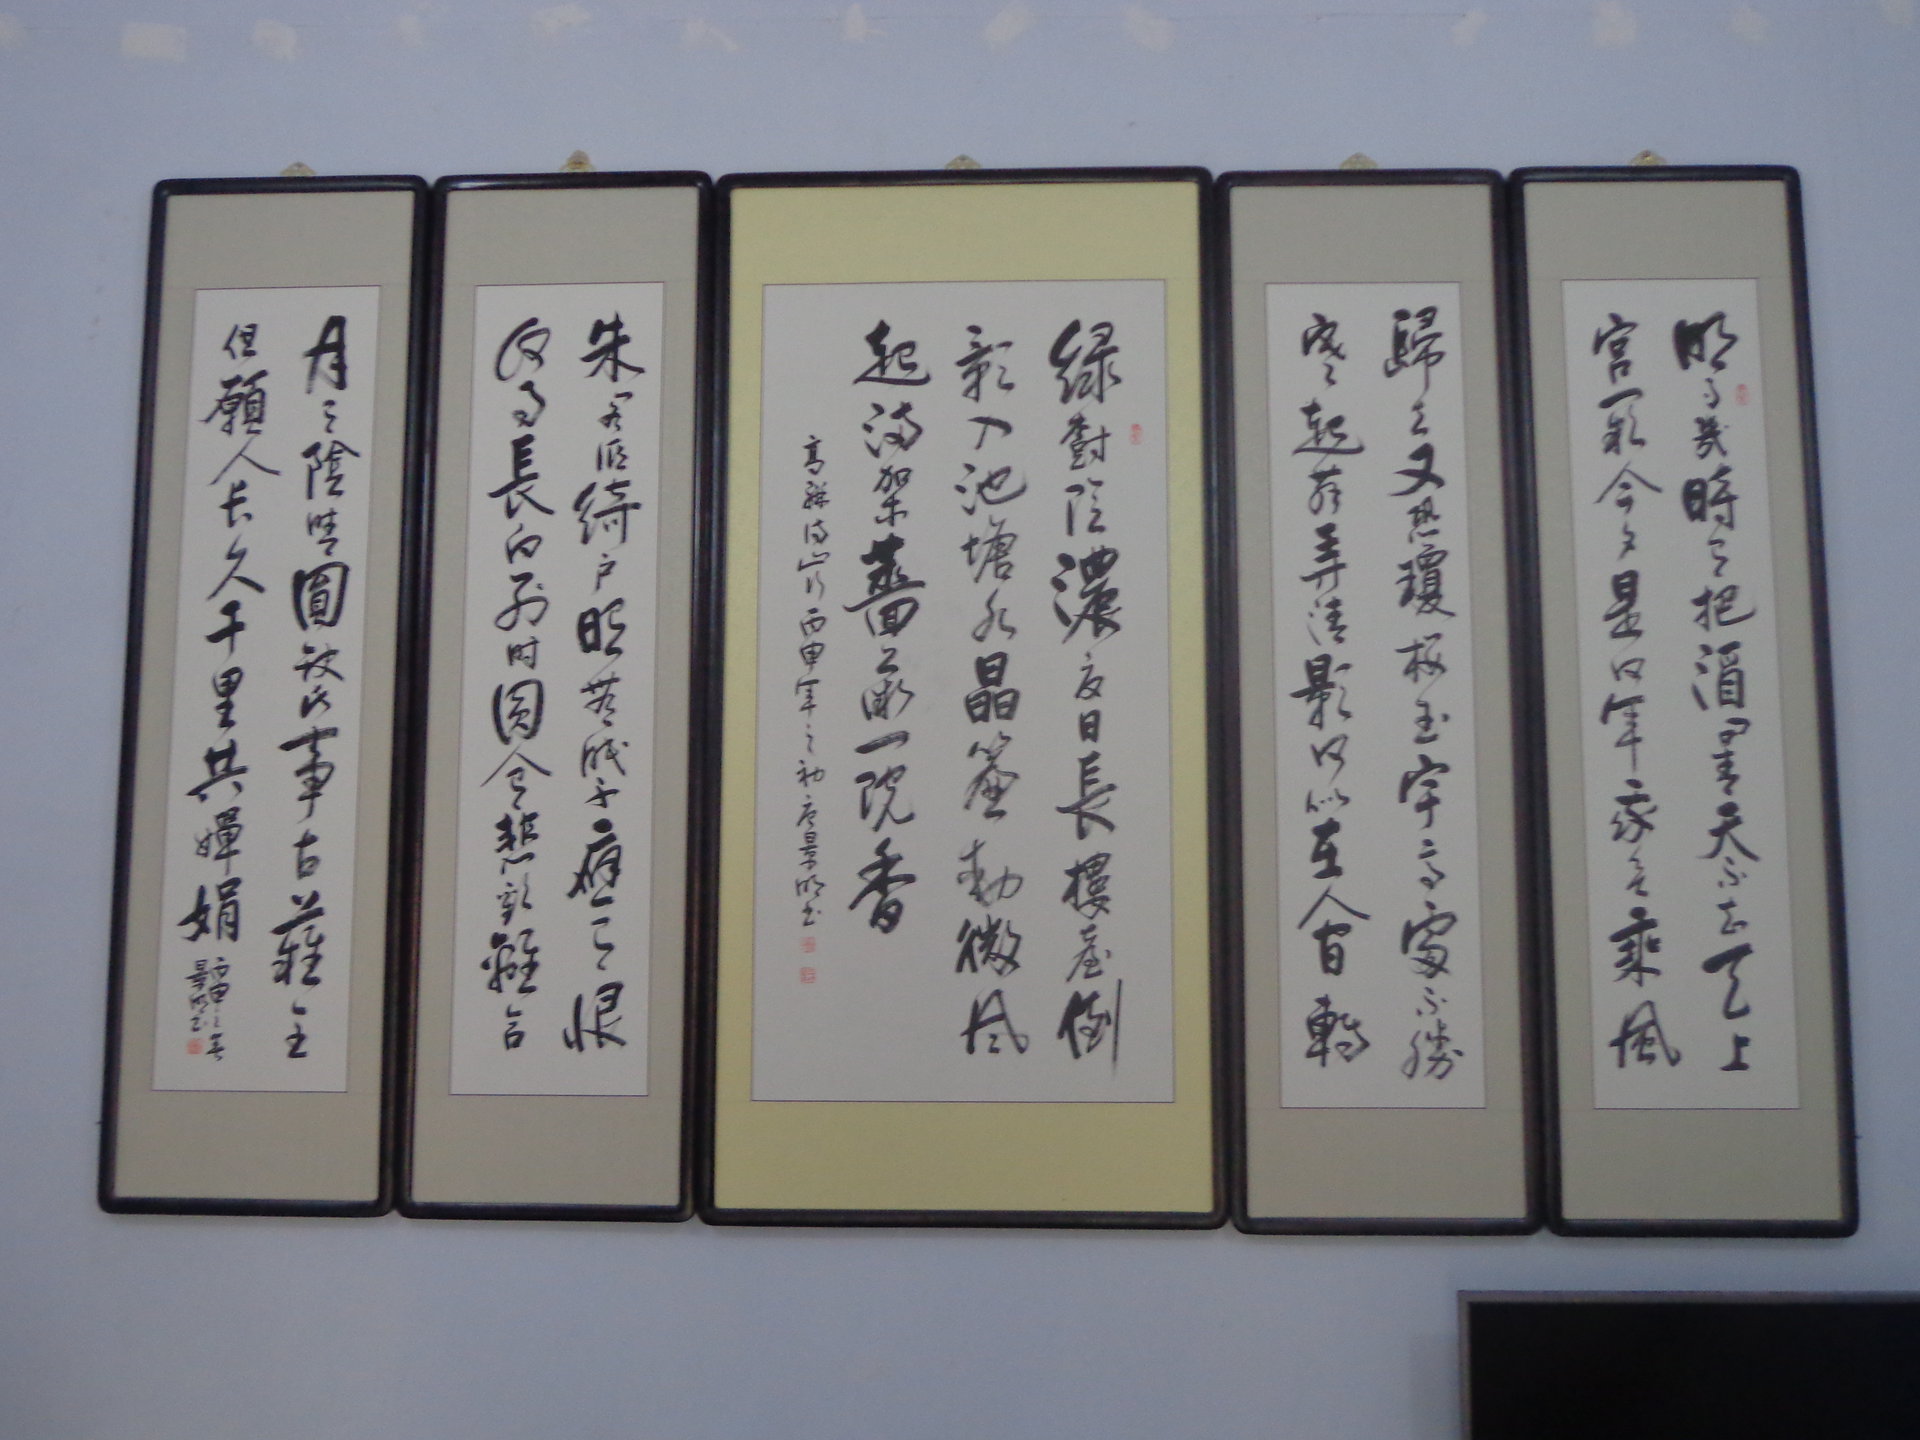 明月幾時有把酒問青天不知天上
宮闕今夕是何年我欲乘風
歸去又恐瓊樓玉宇高處不勝
寒起舞弄清影何似在人間轉
綠樹陰濃夏日長樓臺倒
影入池塘水晶簾動微風
起滿架薔薇一院香
高駢詩山行丙申年之初夏景明書
朱閣低綺戶照無眠不應有恨
何事長向別時圓人有悲歡離合
月有陰晴圓缺此事古難全
但願人長久千里共嬋娟
丙申之春
景明書